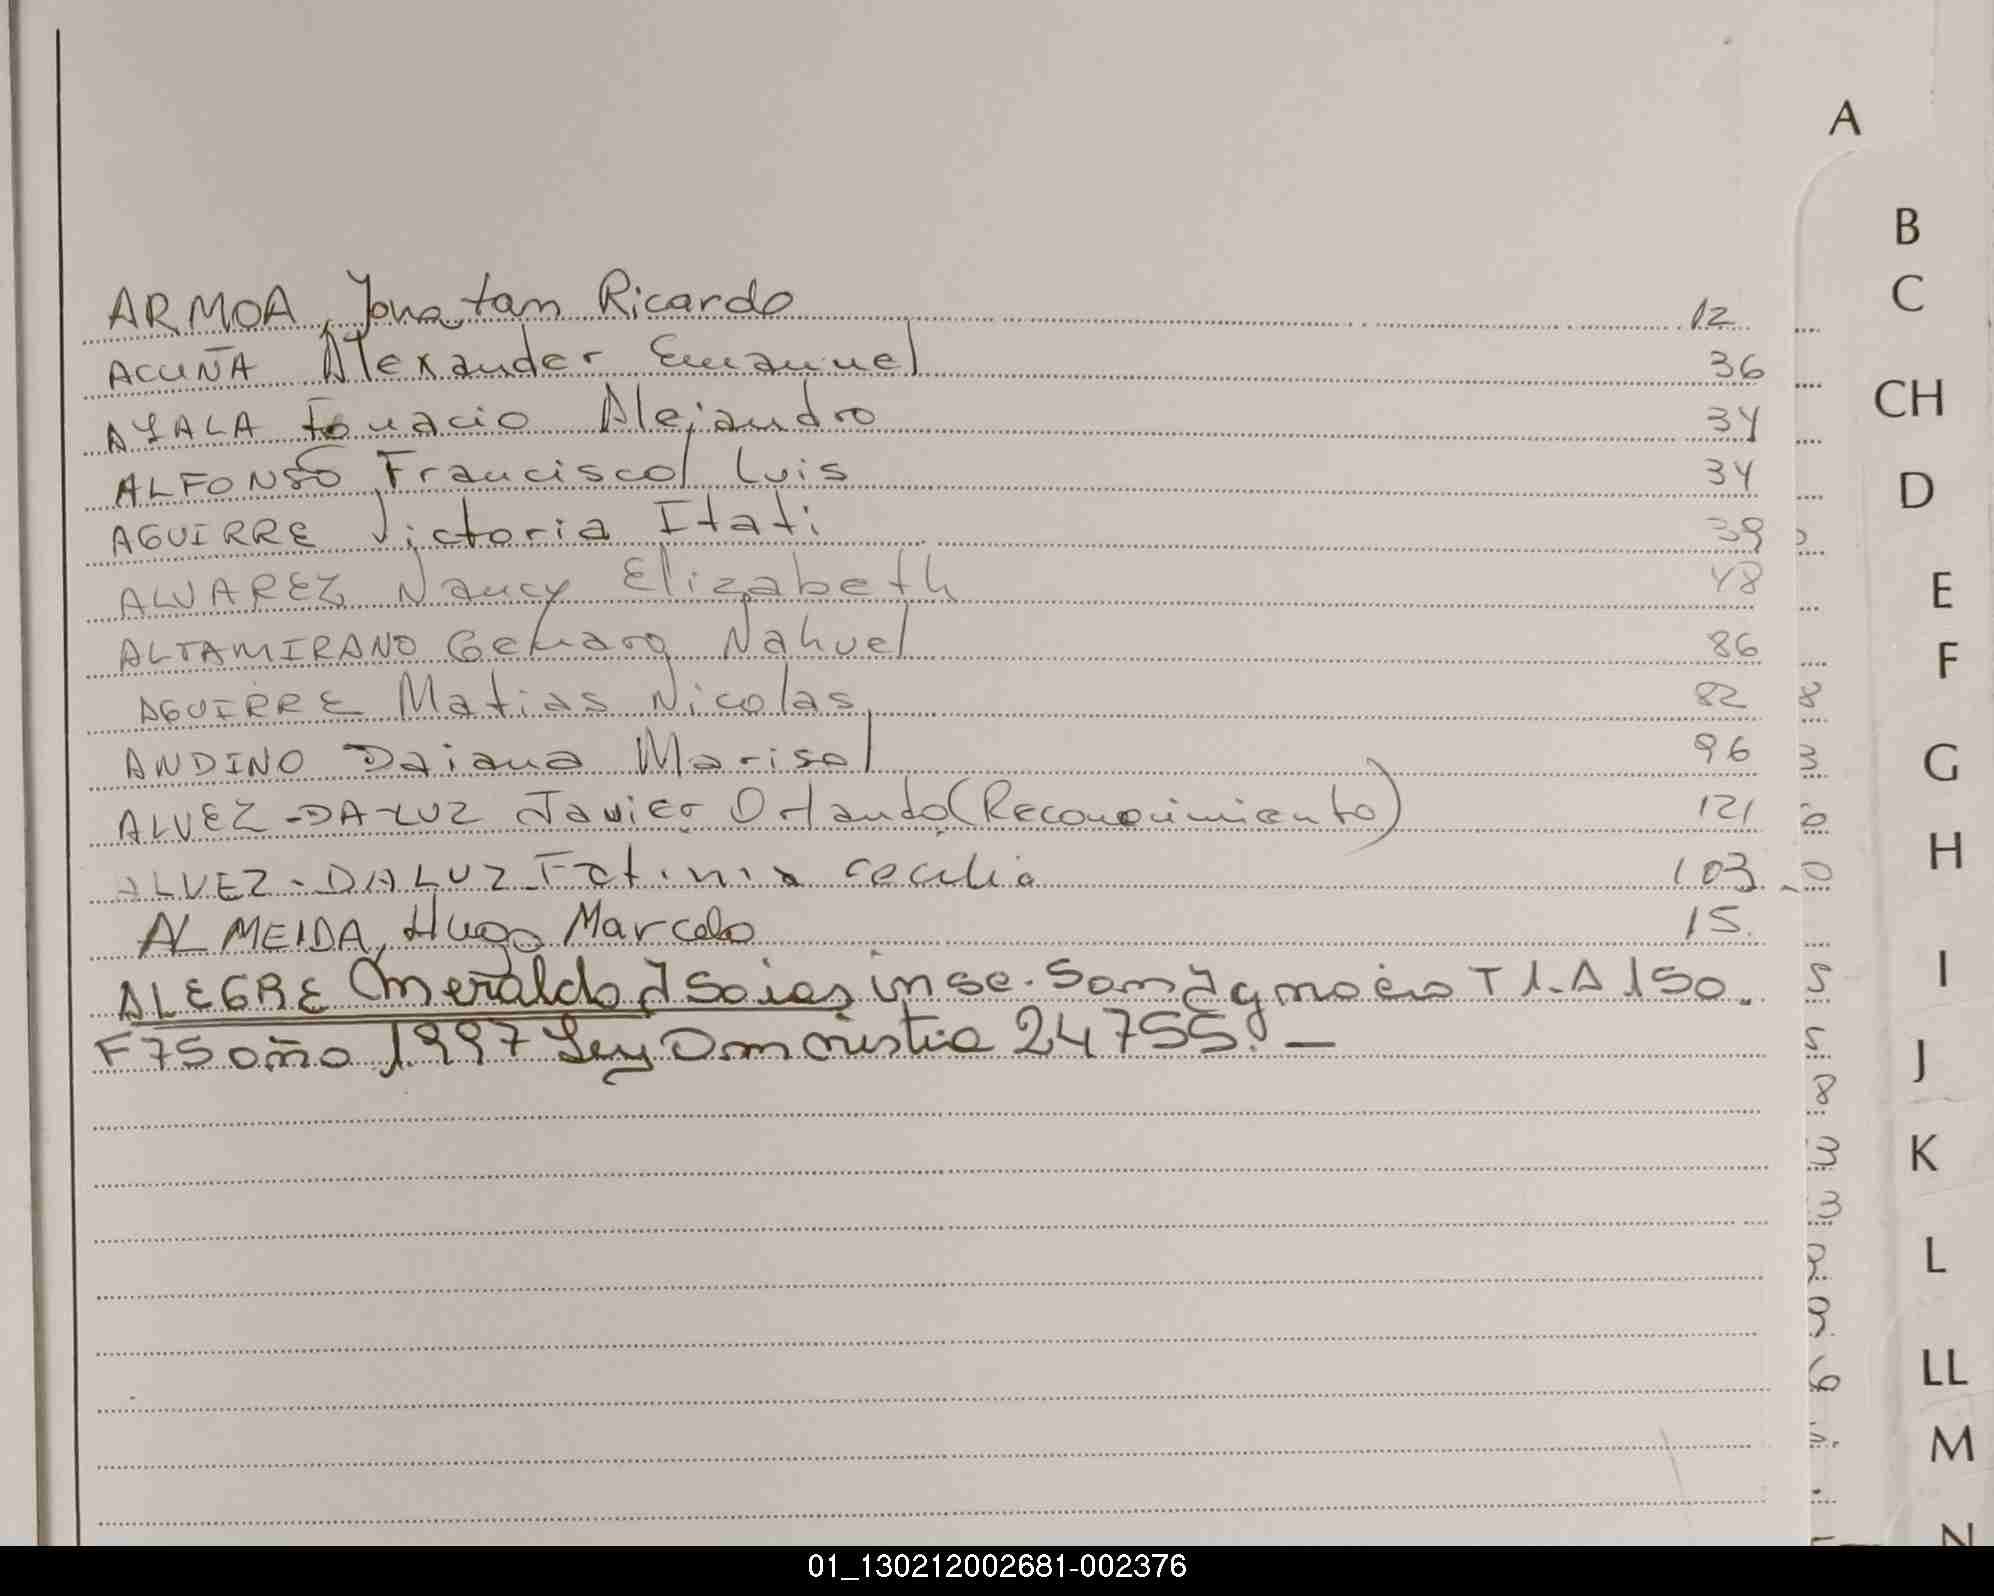 A
B
C
CH
D
E
F
G
H
I
J
K
L
LL
M
N
ARMOA, Jonatan Ricardo 12
ACUÑA Alexander Emanuel 36
AYALA Ignacio Alejandro 34
ALFONSO Francisco Luis 34
AGUIRRE Victoria Itati 39
ALVAREZ Nancy Elizabeth 48
ALTAMIRANO Genaro Nahuel 86
AGUIRRE Matias Nicolas 82
ANDINO Daiana Marisol 96
ALVEZ-DA-LUZ Javier Orlando (Reconocimiento) 121
ALVEZ-DALUZ Fatima Cecilia 103
ALMEIDA, Hugo Marcelo 15
ALEGRE Isaias insc. San Ygnacio T 1. A 150.
F 75 año 1997 Ley 24755. -
01_130212002681-002376